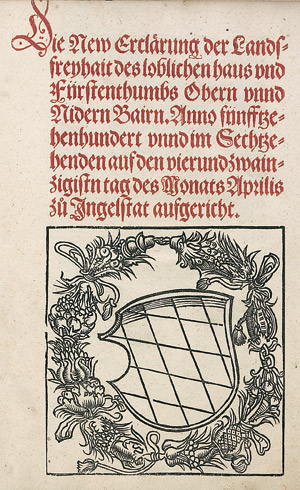 Die New Erclärung der Lands-
freyhait des loblichen haus vnd
Fürstenthumbs Obern vnnd
Nidern Bairn. Anno fünfftze-
henhundert vnnd im Sechtze-
henden auf den vierund zwain-
zigistn tag des Monats Aprilis
zů Ingelstat aufgericht.